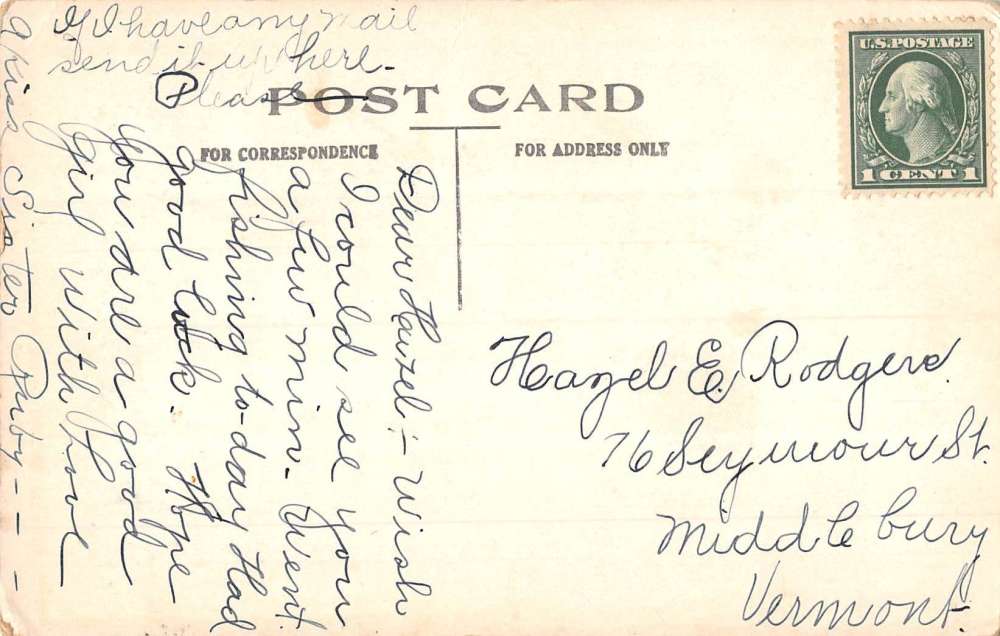 If I have any mail
send it up here.
Please
POST CARD
FOR CORRESPONDENCE
FOR ADDRESS ONLY
U.S. POSTAGE
1 CENT 1
Dear Hazel:- Wish
I could see you
a few min. Went
fishing to-day Had
good luck. Hope
you are a good
girl with Love
& kiss Sister Ruby - - -
Hazel E. Rodgers.
76 Seymour St.
Middlebury
Vermont.